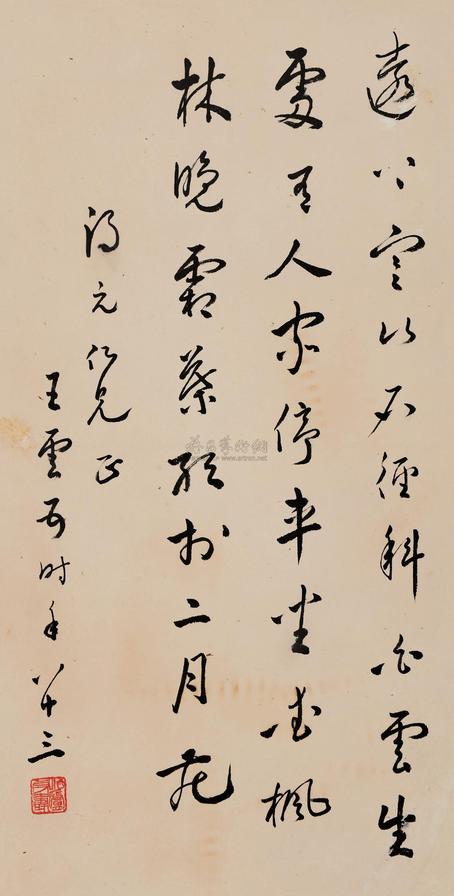 遠上寒山石徑斜白雲生
處有人家停車坐愛楓
林晚霜葉紅於二月花
元仁兄正
王雲五時年八十三
www.artron.net